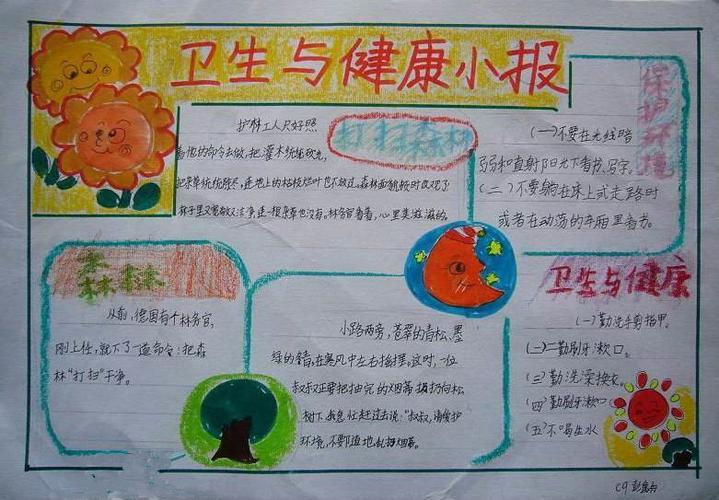 卫生与健康小报
打扫森林
护林工人只好照
着他的命令去做,把灌木统统砍光,
把杂草统统除尽,连地上的枯枝烂叶也不放过。森林面貌顿时改观了
林子里又宽敞又洁净,连一根杂草也没有。林务官看着,心里美滋滋的。
保护环境
(一)不要在光线暗
弱和直射阳光下看书、写字。
(二)不要躺在床上或走路时
或者在动荡的车厢里看书。
森林
从前,德国有个林务官,
刚上任,就下了一道命令:把森
林“打扫”干净。
小路两旁,苍翠的青松、墨
绿的雪,在寒风中左右摇摆。这时,一位
叔叔正要把抽完的烟蒂扔向松
树下,我急忙赶过去说:“叔叔,请爱护
环境,不要随地乱扔烟蒂。
卫生与健康
(一)勤洗手剪指甲。
(二)二勤刷牙漱口。
(三)勤洗澡换衣。
(四)勤刷牙漱口
(五)不喝生水